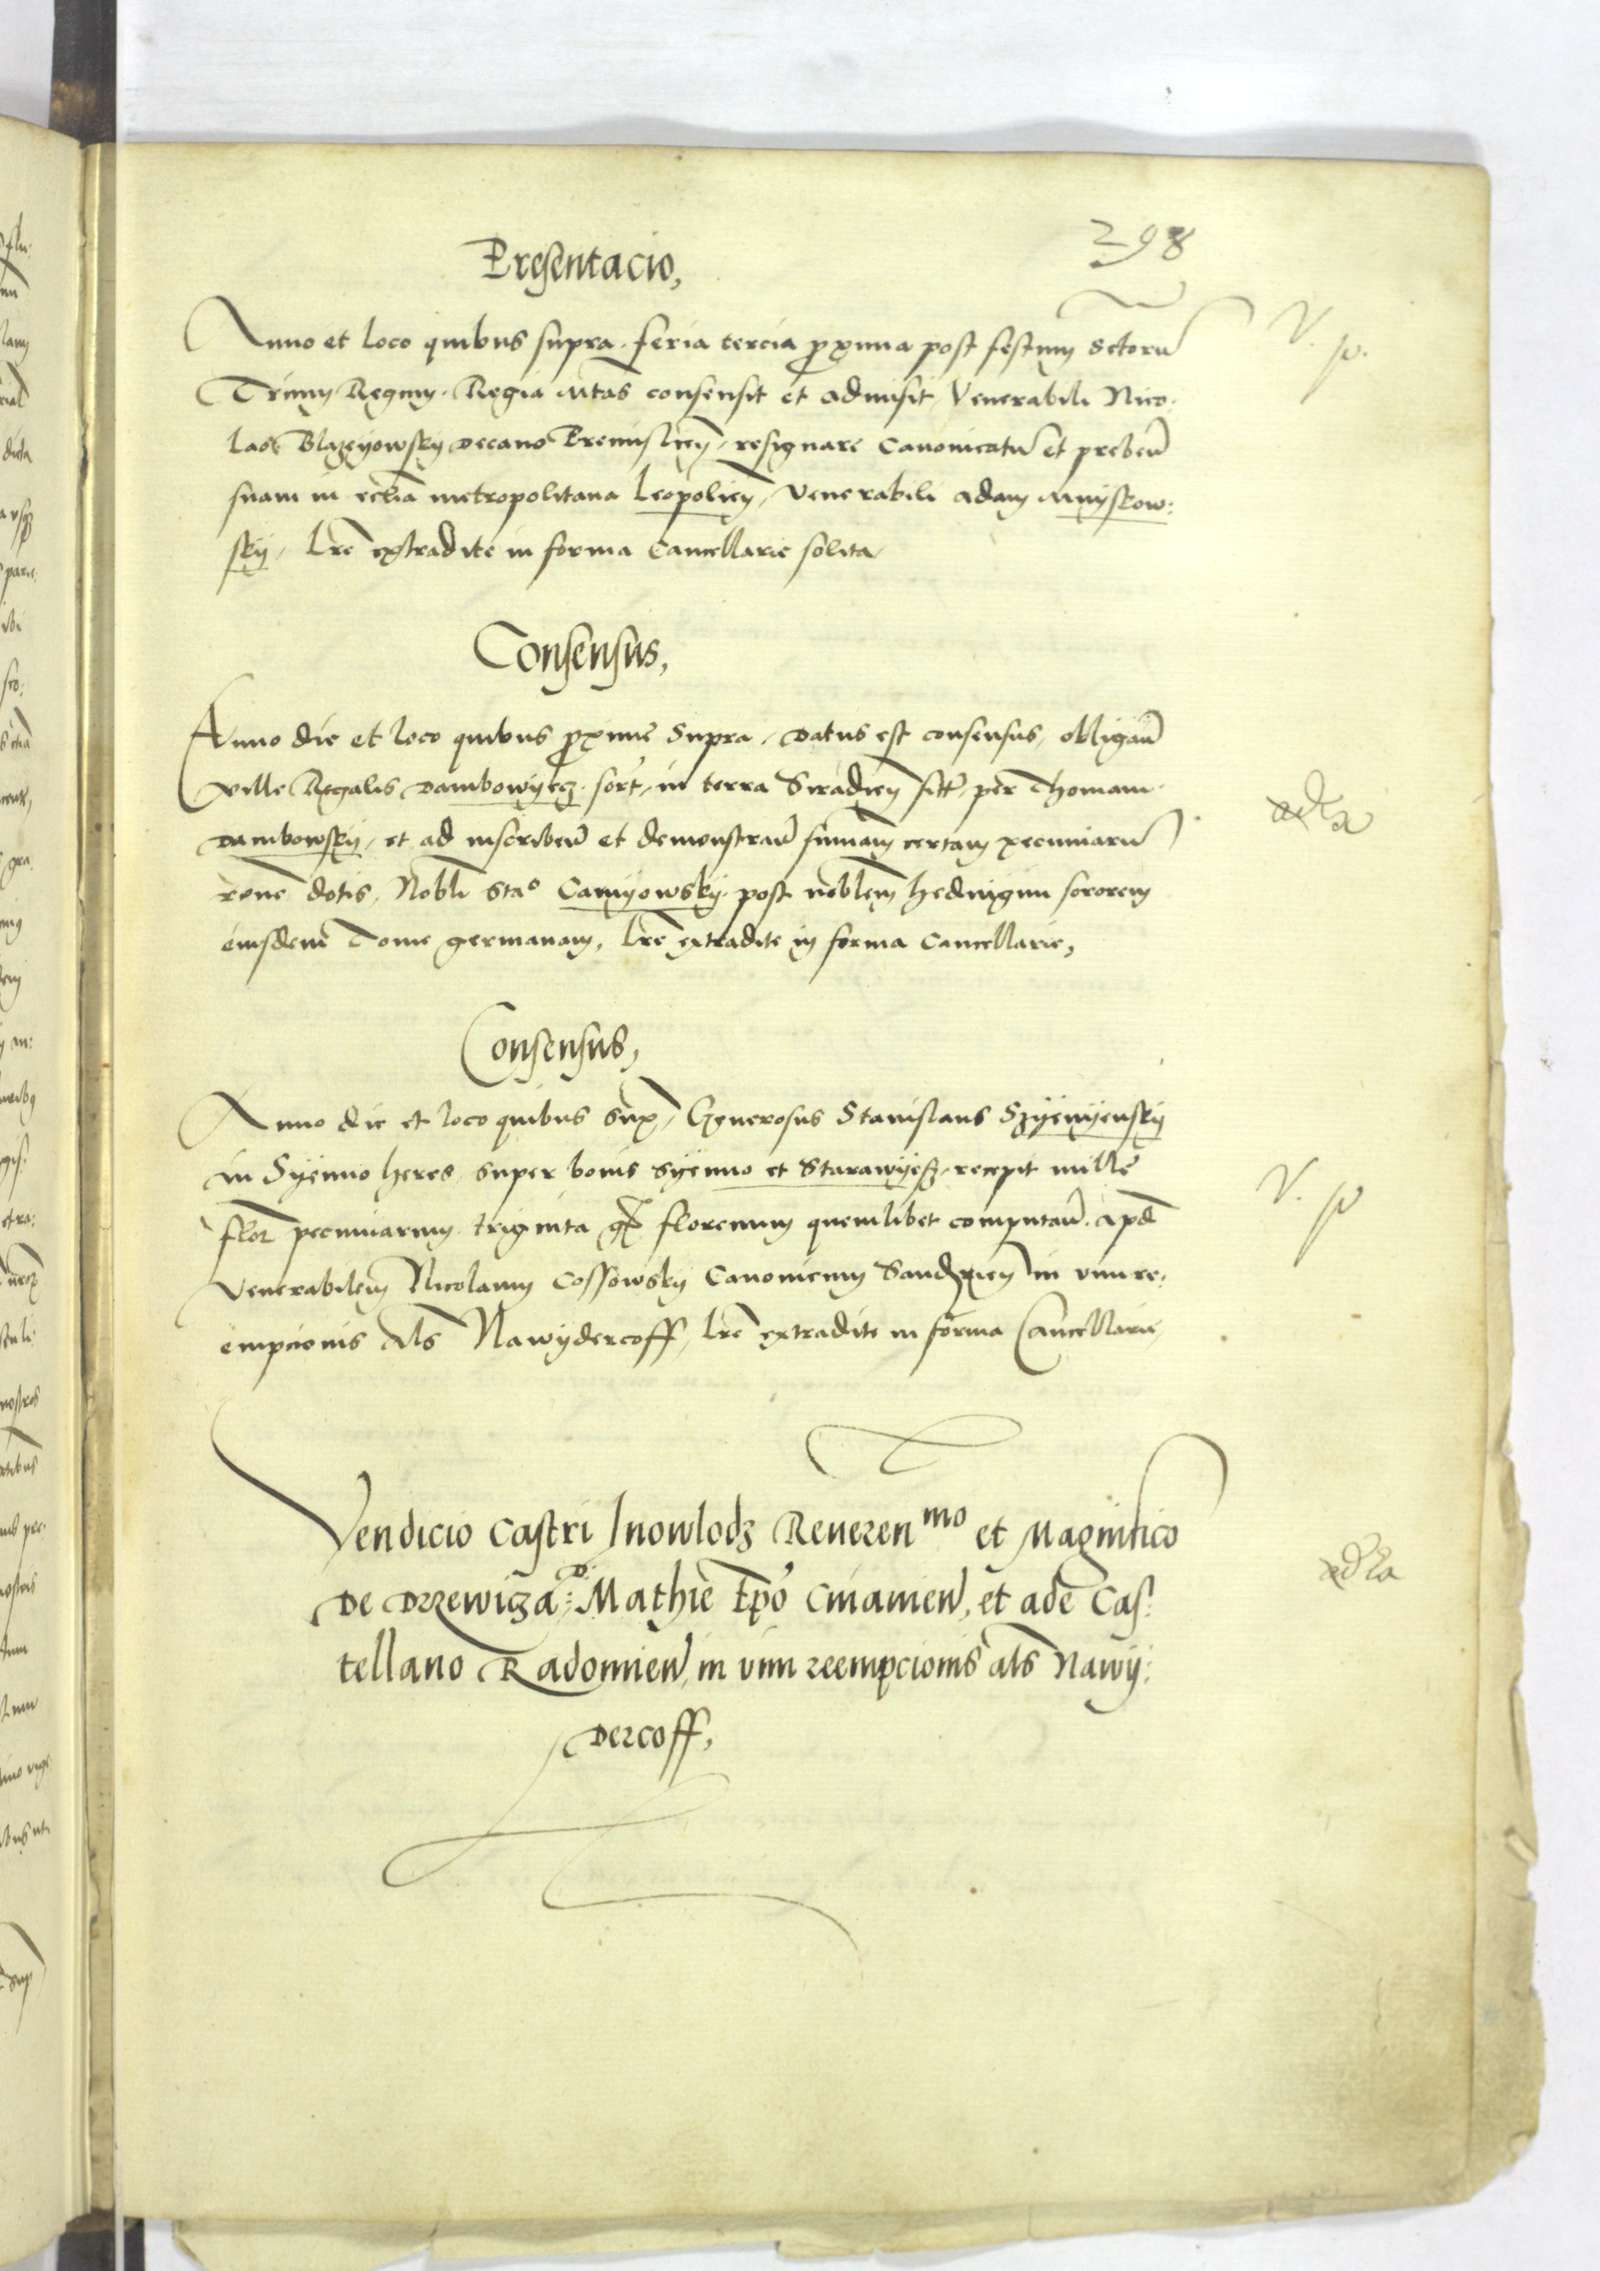 298
Presentacio,
Anno et loco quibus supra. feria tercia proxima post festum Sctoru
Trium Regum. Regia Mtas consensit et admisit, Venerabili Nico-
lao Blazeyowsky decano Premislien, resignare Canonicatu et prebend
suam in ecclia metropolitana Leopolien, Venerabili Adam Myskow:
sky, Lre extradite in forma Cancellarie solita,
V. p.
Consensus,
Anno die et loco quibus proxime supra, datus est consensus, obligand
ville Regalis Dambowyecz. sort, in terra Siradien sitt, per Thomam
Dambowsky, et ad inscribend et demonstrand sumam certam pecuniaru
rone dotis, Nobli Stao Camyowsky. post noblem Hedwigim sororem
eiusdem Tome germanam, Lre extradite in forma Cancellarie,
Consensus,
Anno die et loco quibus sup, Generosus Stanislaus Szyenyensky
in Syenno heres, super bonis Syenno et Starawyesz, recepit mille
flor pecuniarum, triginta gr florenum quemlibet computand. apd
Venerabilem Nicolaum Cossowsky Canonicum Sandzien in vim re-
empcionis Als Nawydercoff, Lre extradite in forma Cancellarie,
V. p
Vendicio Castri Inowlodz Reveren mo et Magnifico
D.
De Drzewicza: Mathie Epo Cuiavien, et ade Cas:
tellano Radomien, in vim reempcionis als Nawy:
dercoff,